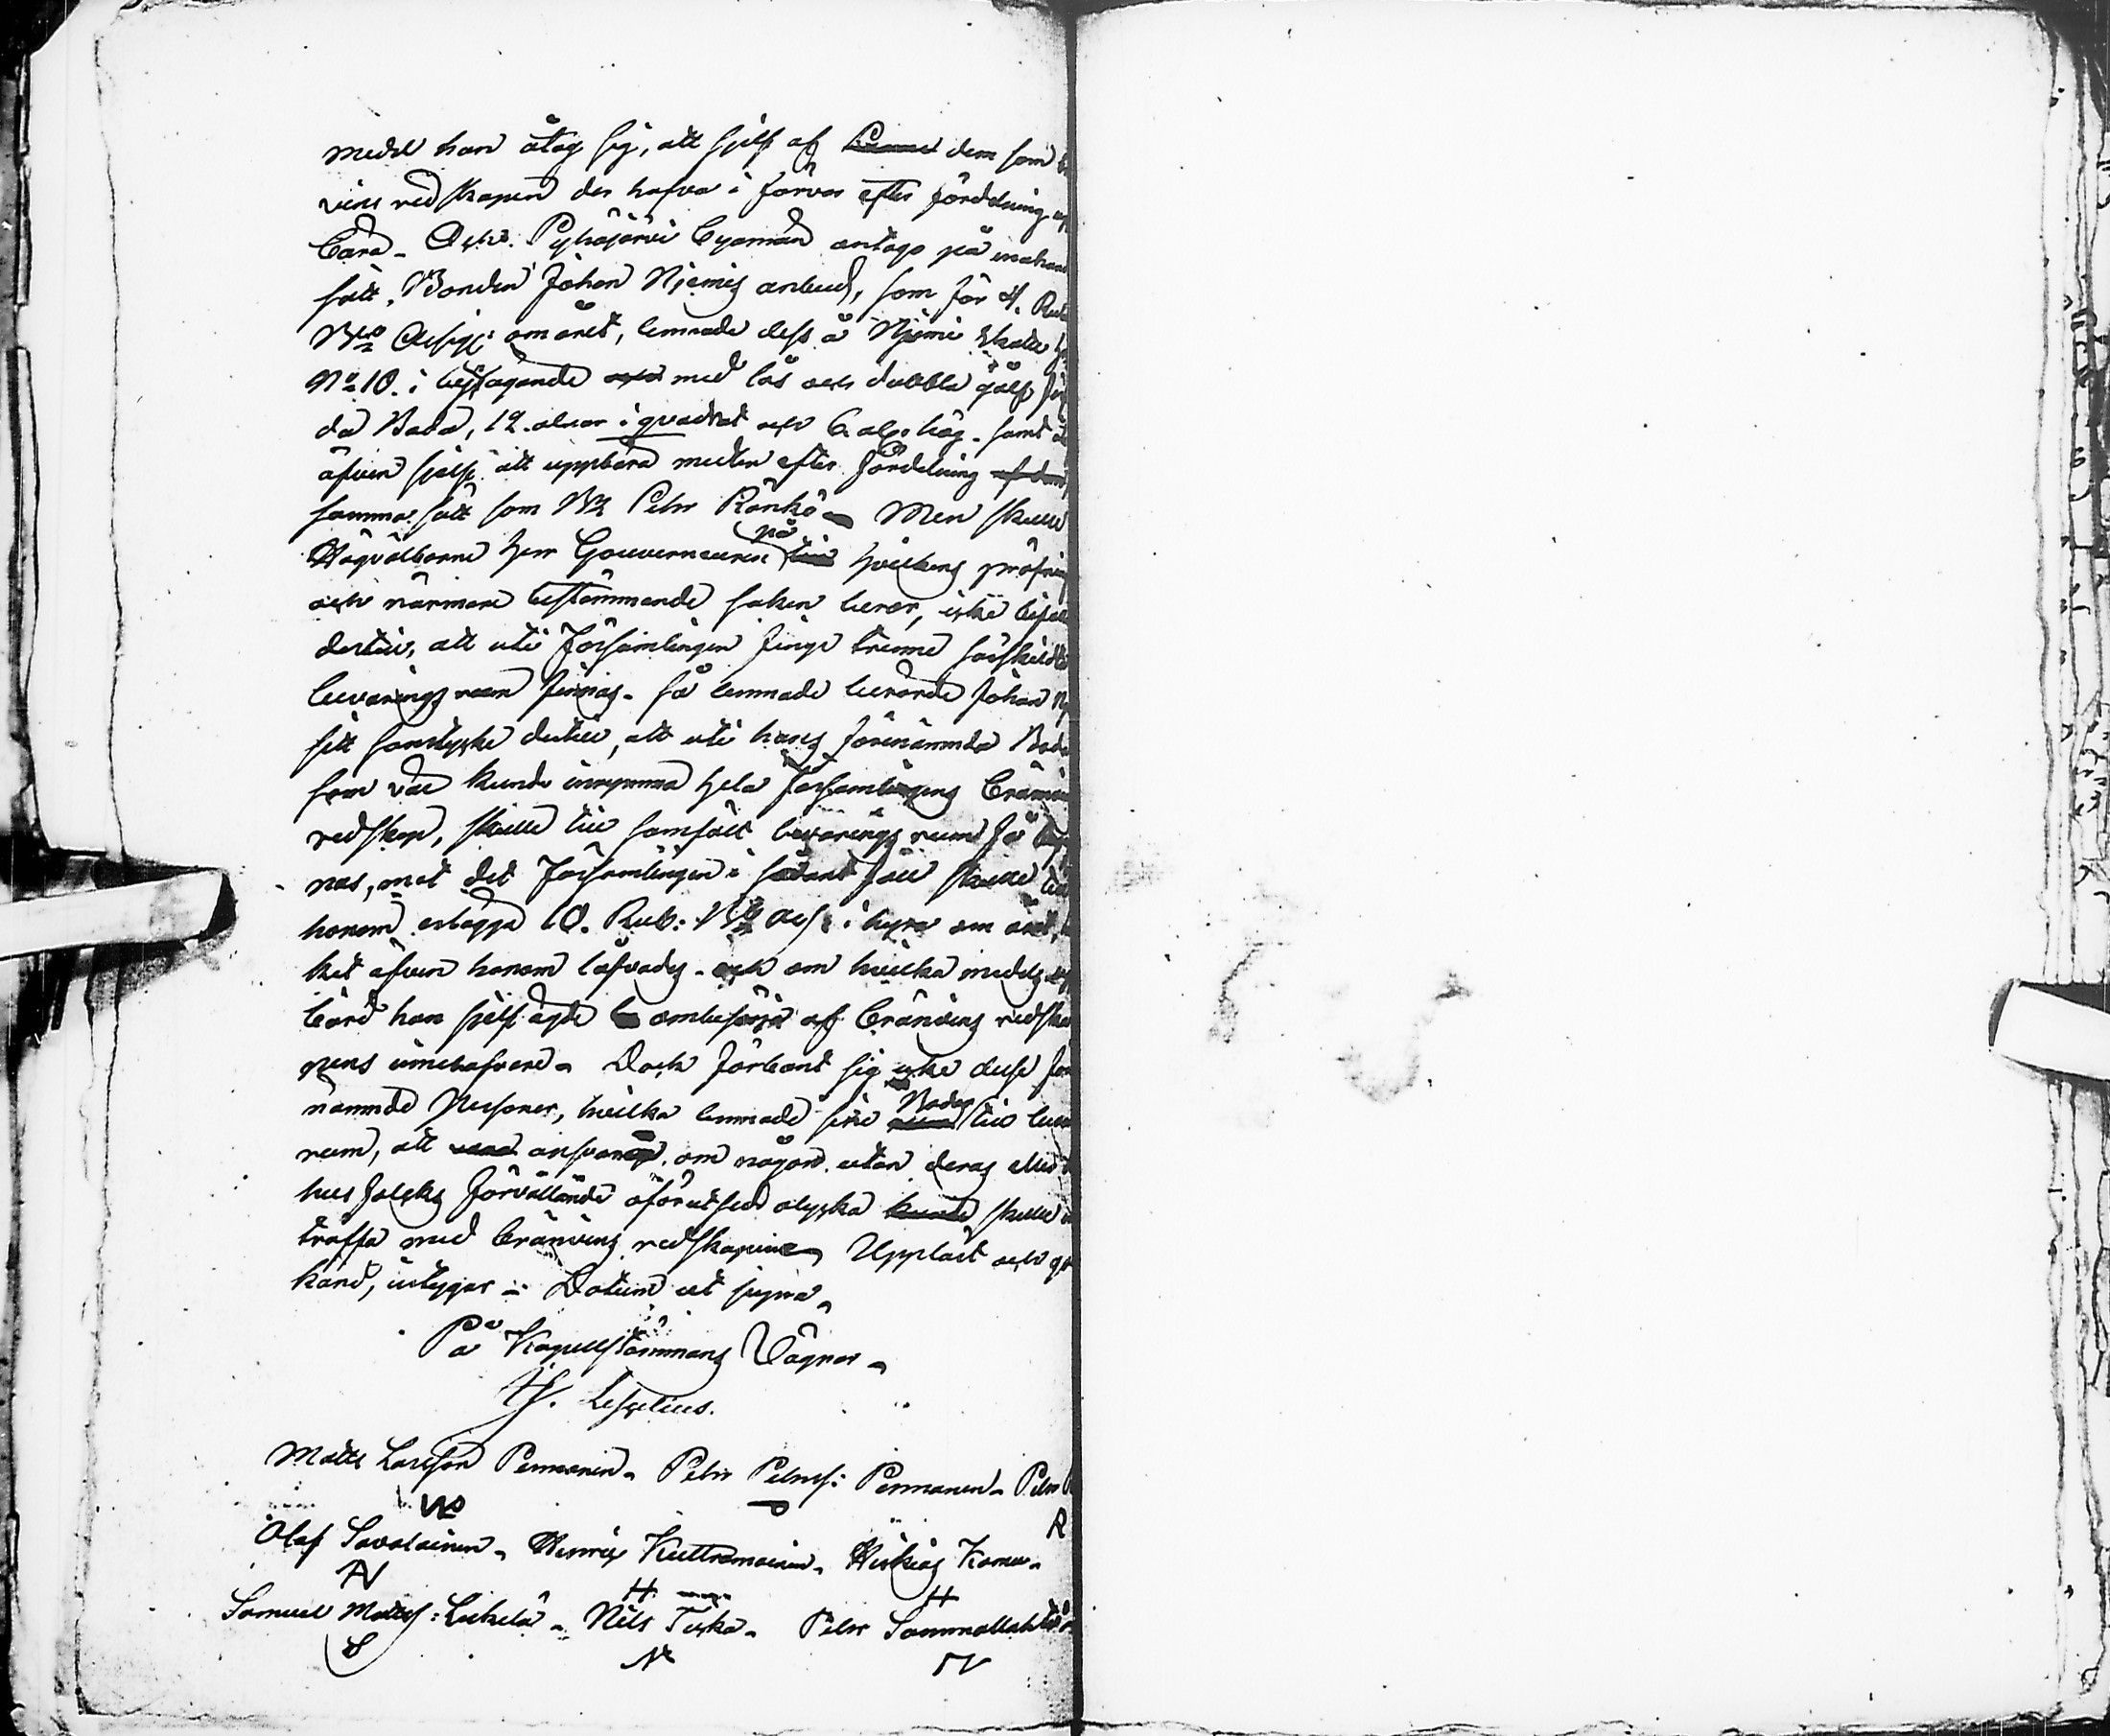 medel han åtog sig, att sjelf af dem som
vins redskapen der hafva i förvar efter fördelning upp
bära. Och Pyhäjärvi byamän antogo på enahanda
sätt, Bonden Johan Niemis anbud, som för 4. Rub
Bco Assign: om året, lemnade dess å Niemi Skatte
No 10. i begagnande med lås och dubbla golf
da Boda, 12. alnar i qvadrat och 6. aln: hög. samt
äfven sjelf att uppbära medlen efter fördelning
samma sätt som Bd Pehr Rönkö. Men skulle
Högvälborne Herr Gouverneuren på hvilkens pröfning
och närmare bestämmande saken beror, icke bifalla
dertill, att uti Församlingen finge trenne särskildte
bevarings rum finnas. Så lemnade berörde Johan
sitt samtycke dertill, att uti hans förenämnda Boda
som väl kunde inrymma hela Församlingens Bränvins
redskap, skulle till samfält bevarings rum få
nas, mot det Församlingen i sådant fall skulle till
honom erlägga 10. Rub: Bco Ass: i hyra om året,
ket äfven honom lofvades. och om hvilka medels upp
börd han sjelf ägde ombesörja af bränvins redska
pens innehafvare. Dock förbant sig icke desse för
nämnde Personer, hvilka lemnade sine Bodar till
rum, att ansvara, om någon utan deras eller
husfolks förvållande oförutsedd olycka skulle
träffa med bränvins redskapen. Uppläst och god
känd, intygar. Datum ut supra.
På Kapellstämmans Vägnar.
Matts Larsson Permanen. Pehr Pehrss: Permanen. Pehr
R
Olof Savolainen. Henric Kuttramoinen. Hiskias Komu.
H H
Samuel Mattss: Liukela. Nils Tiska. Pehr Sammallahti
N